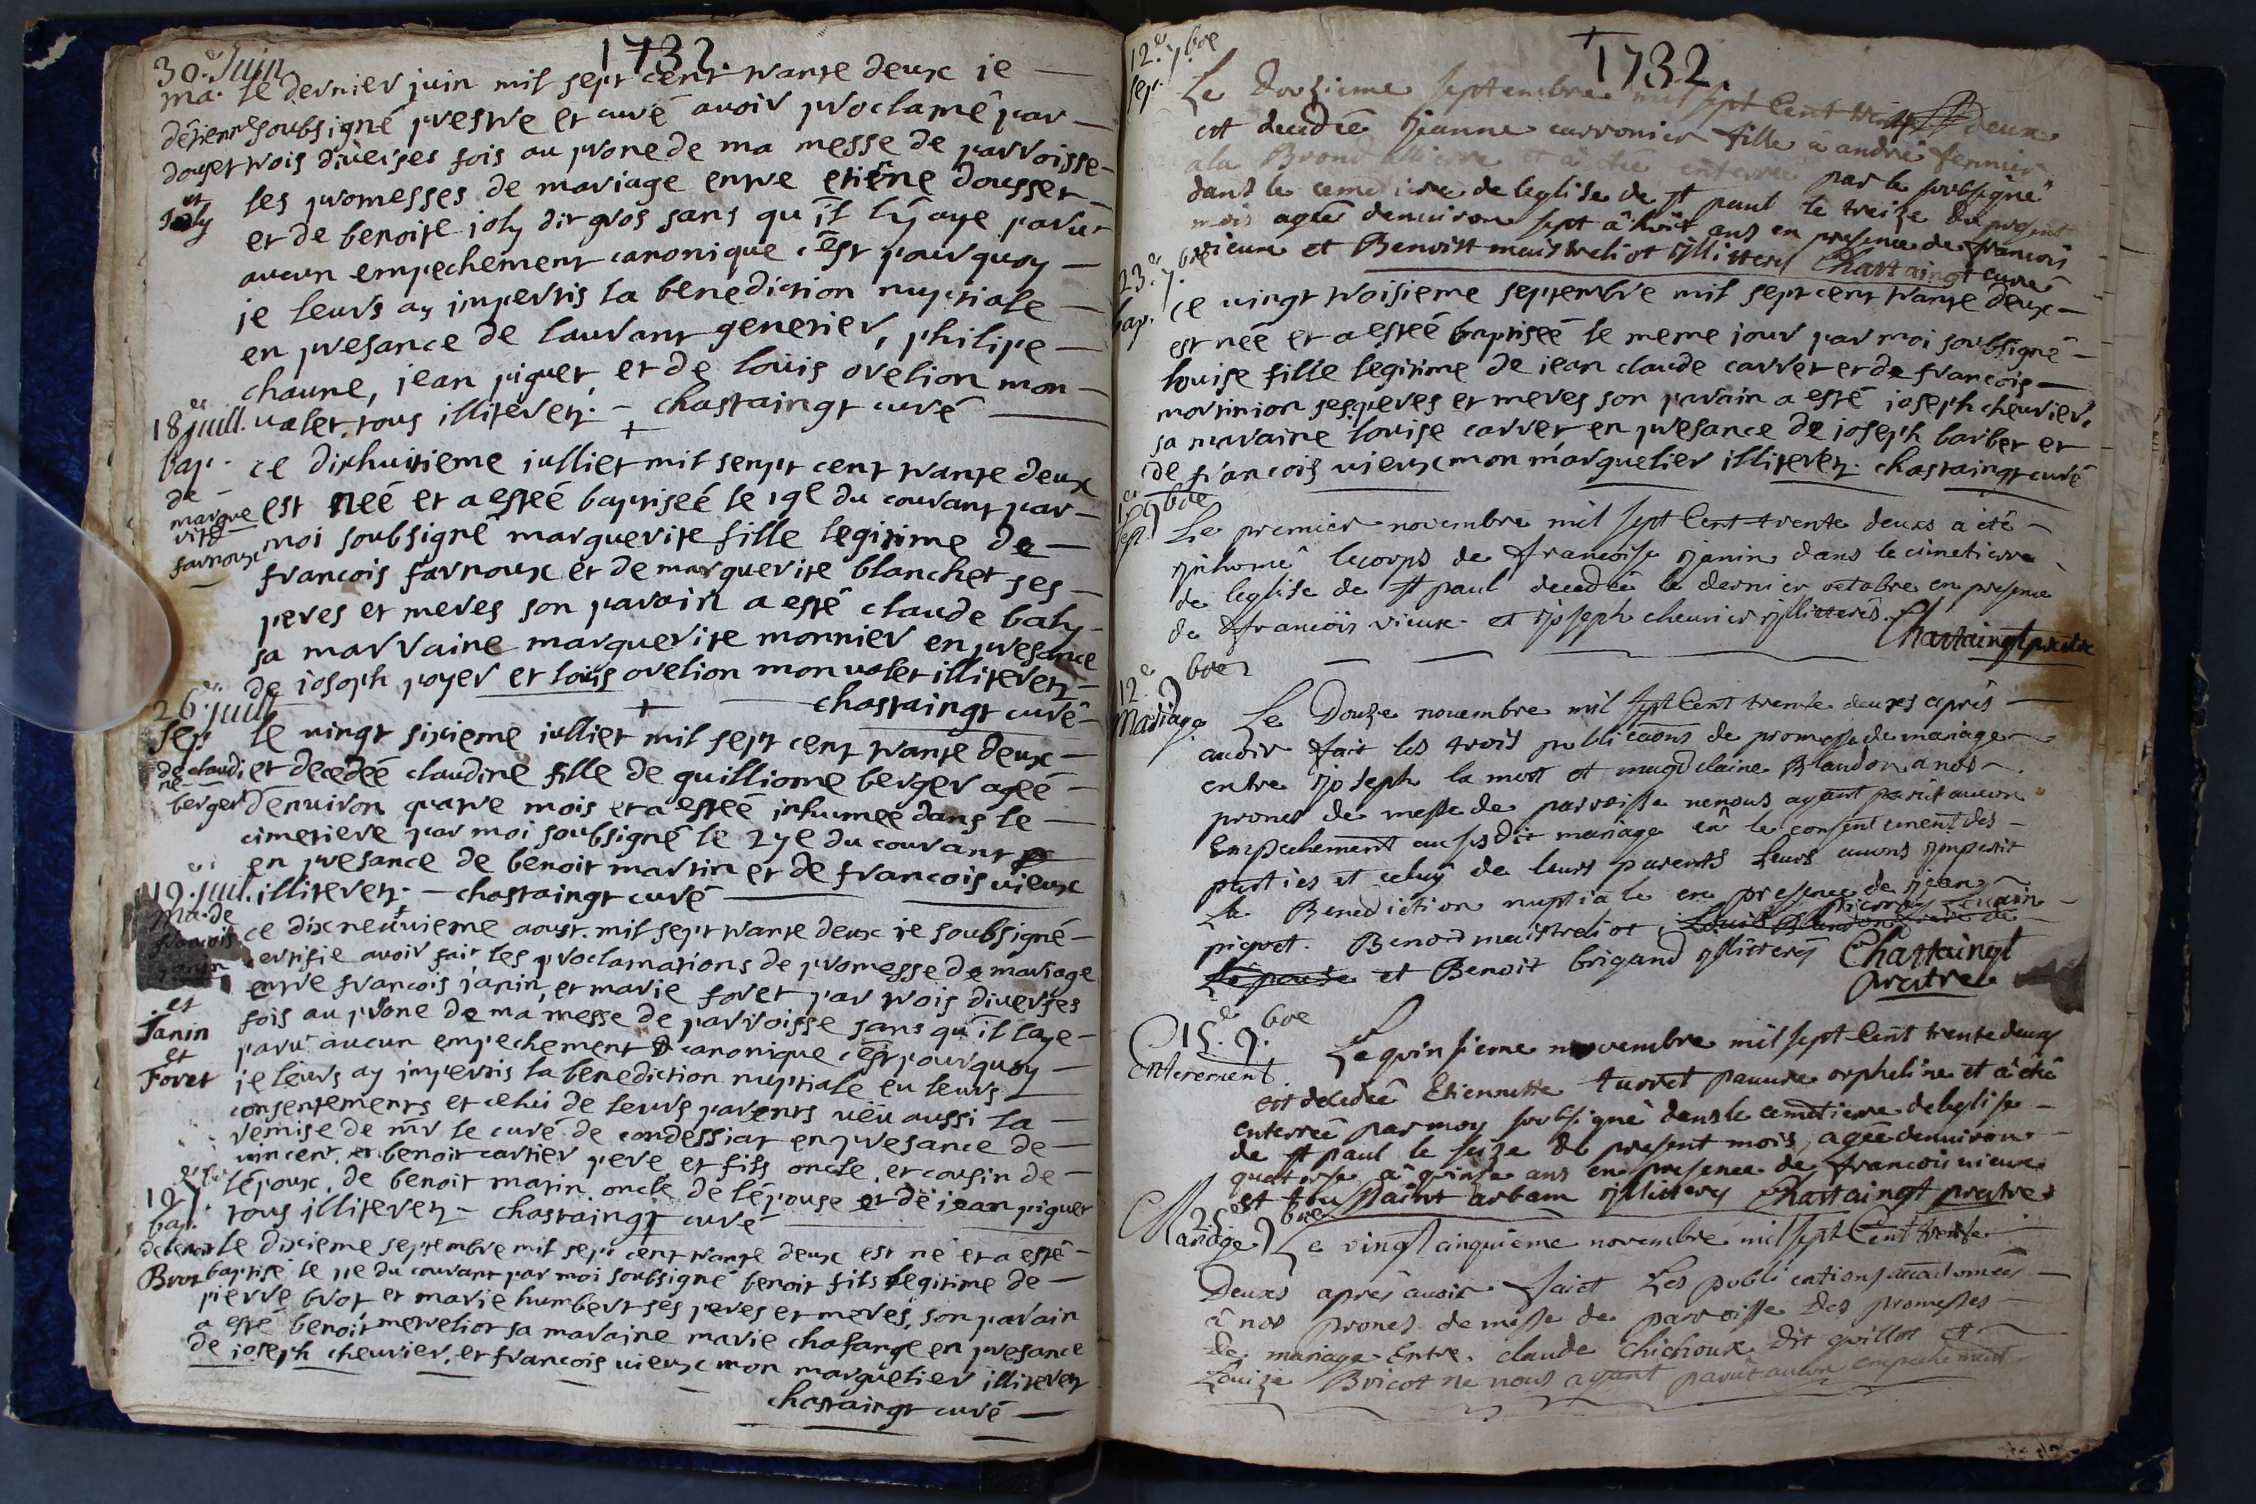 1732.
30.e Juin
ma. le dernier juin mil sept cent trante deux je
détienne soubsigné prestre et curé avoir proclamé par
douset trois diverses fois au prone de ma messe de parroisse
et les promesses de mariage entre etiêne dousset
Joly et de benoite joly dit gros sans qu'il lÿ aye paru
aucun empechement canonique c'est pourquoy
je leurs ay impertis la benediction nuptiale
en presance de laurant generier, philipe
chaune, jean piguet, et de louis ovelion mon
valet, tous illiteretz. chastaingt curé
18 juill.
bap. ce dixhuitieme julliet mil sempt cent trante deux
de est neé et a esteé baptiseé le 19e du courant par
marguerite moi soubsigné marguerite fille legitime de
farnoux francois farnoux et de marguerite blanchet ses
peres et meres son parain a esté claude baly
sa marraine marguerite monnier en presance
de joseph poyer et louis ovelion mon valet illiteretz
chastaingt curé
26.e juill
sep le vingt sixieme julliet mil sept cent trante deux
de claudine et decedeé claudine fille de guilliome berger ageé
berger denviron quatre mois et a esteé inhumeé dans le
cimetiere par moi soubsigné le 27e du courant
en presance de benoit martin et de francois vieux
illiteretz. chastaingt curé
19. juil.
ma. de ce dix neuvieme aoust mil sept trante deux je soubsigné
francois certifie avoir fait les proclamations de promesse de mariage
janin entre francois janin, et marie foret par trois diverses
et fois au prône de ma messe de parroisse sans qu'il laye
Janin paru aucun empechement canonique c'est pourquoy
et je leurs ay impertis la benediction nuptiale eu leurs
Foret
consentements et celui de leurs parents veü aussi la
remise de mr le curé de condessiat en presance de
vincent, et benoit cartier pere et fils oncle, et cousin de
lépoux, de benoit marin oncle de lépouse et de jean piguet
tous illiteretz chastaingt curé
10
bap. le dixieme septembre mil sept cent trante deux est né et a esté
de benoit baptisé le 11e du courant par moi soubsigné benoit fils legitime de
Brot pierre brot et marie humbert ses peres et meres, son parain
a esté benoit metrelior sa maraine marie chafange en presance
de joseph cheurier, et francois vieux mon marguelier illiteretz
chastaingt curé
1732.
12.e 7.bre
sep. Le Douzieme septembre mil sept Cent trente deux
est decedeé jeanne carronier fille a andré fermier
a la Brond et à étée enterrée par le soubsigné
dans le cemetiere de leglise de st paul le treize du present
mois agée denviron sept â huit ans en presence de francois
vieux et Benoitt maistreliot illitterés Chastaingt curé
23.e 7.bre
bap. ce vingt troisieme septembre mil sept cent trante deux
est neé et a esteé baptiseé le meme jour par moi soubsigné
louise fille legitime de jean claude carret et de francoise
morinion ses peres et meres son parain a esté joseph cheurier,
sa maraine louise carret en presance de joseph barbet et
de francois vieux mon marguelier illiteretz. chastaingt curé
1.e 9bre
sep. Le premier novembre mil sept Cent trente deux à été
inhumé le corps de francoise janin dans le cimetiere
de leglise de st paul decedée le dernier octobre en presence
de francois vieux et joseph cheurier illitterés. Chastaingt prestre
12.e 9bre
Mariage Le Douze novembre mil sept Cent trente deuxs aprés
avoir fait les trois publications de promesse de mariage
entre joseph la mort et magdelaine Blandon a nos
prones de messe de parroisse ne nous ayant parût aucun
Empechement au susdit mariage eû le consentement des
parties et celuy de leurs parents leurs avons imparti
La Benediction nuptiale en presence de jean
piguet. Benoit maistreliot Louis Blandon
Lepouse et Benoit brigand illitterés Chastaingt
prestre
15.e 9.bre
Enterement. Le quinsieme novembre mil sept Cent trente deux
est decedée Etiennette turret pauvre orpheline et à été
enterrée par moy soubsigné dans le cemetiere de leglise
de st paul le seize du present mois, agée denviron
quatorse â quinse ans en presence de francois vieux
et toussaint arbam illitterés Chastaingt prestre
25.e 9bre
Mariage Le vingt cinquieme novembre mil sept Cent trente
Deuxs aprés avoir faict Les publications
â nos prones de messe de parroisse des promesses
de mariage Entre claude Chichoux dit guillot et
Louize Bricot ne nous ayant parût aucun empechement